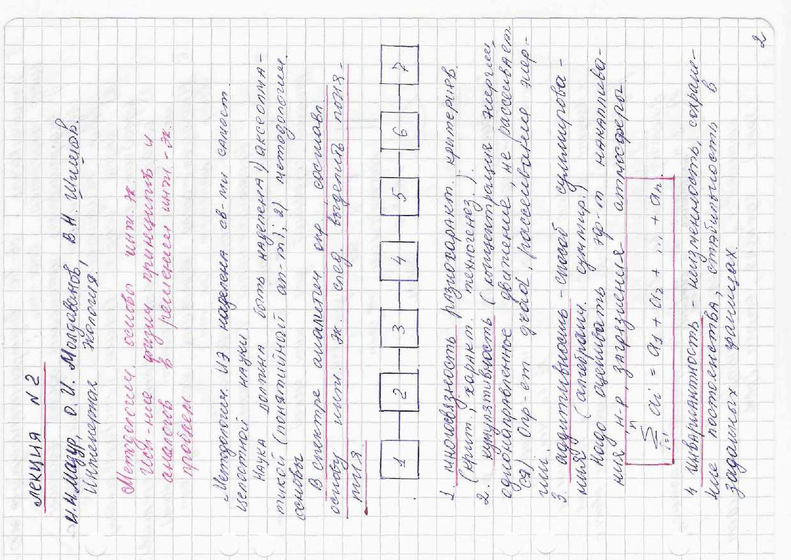 ЛЕКЦИЯ №2
И.И. Мазур, О.И. Молдаванов, В.Н. Шишов.
Инженерная экология.
Методологич. основы инж. эк
исв-ние физич принципов и
аналогов в решении инж.-эк.
проблем
Методологич. ИЭ наделена св-ми самост
целостной науки.
Наука должна быть наделена 1) аксеома-
тикой (понятийный ап-т); 2) методологич.
основы
В спектре аналитич опр, составл.
основу инж. эк. след. выделить поня-
тия.
1 2 3 4 5 6 7
1. многовязность разнохаракт. критериев.
(крит., характ. техногенез).
2. кумулятивность (концентрация энергии,
однонаправленное движение, не рассеивает
ся. Опр-ет ущад, рассеивание энер-
гии.
3. аддитивность - способ суммирова-
ния (алгебраич. суммир.)
надо оценивать эф-т накаплива-
ния н-р, загрязнения атмосферы.
n
∑ ai = a1 + a2 + ... + an
i=1
4 инвариантность - неизменность, сохране-
ние постоянства, стабильность в
заданных границах
2